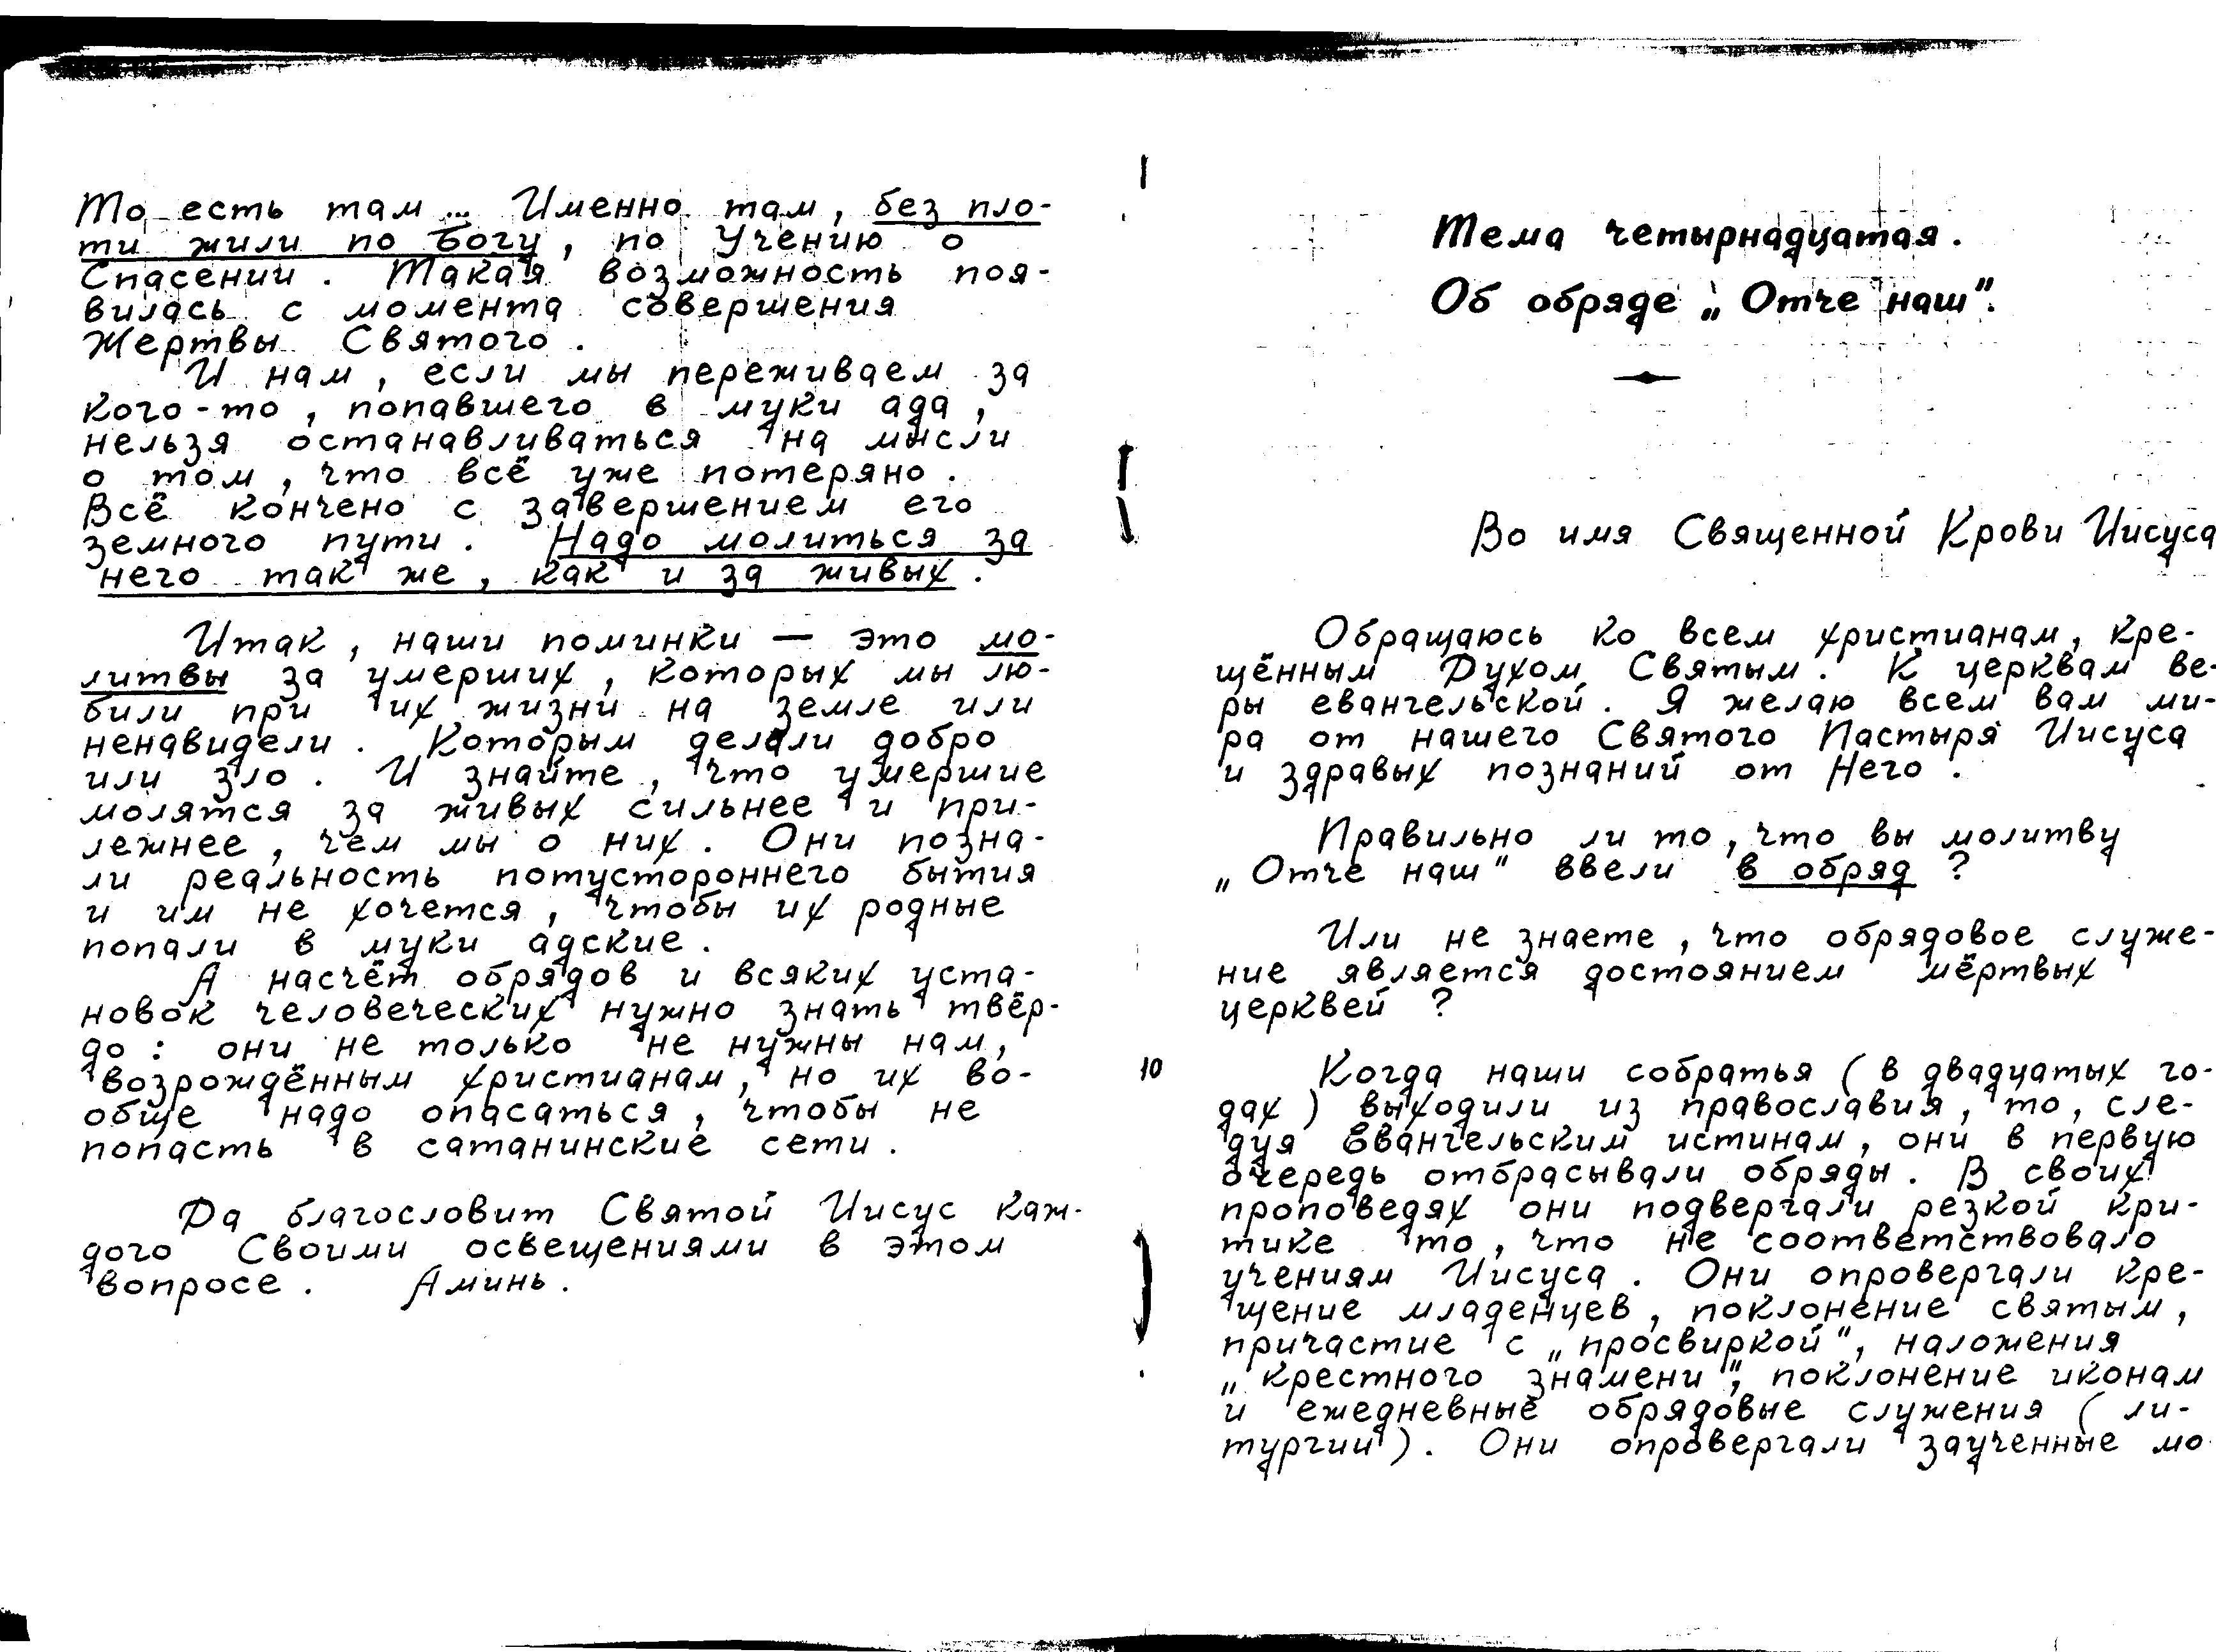 То есть там... Именно там, без пло-
ти жили по Богу, по Учению о
Спасении. Такая возможность поя-
вилась с момента совершения
Жертвы Святого.
И нам, если мы переживаем за
кого-то, попавшего в муки ада,
нельзя останавливаться на мысли
о том, что всё уже потеряно.
Всё кончено с завершением его
земного пути. Надо молиться за
него так же, как и за живых.
Итак, наши поминки — это мо-
литвы за умерших, которых мы лю-
били при их жизни на земле или
ненавидели. Которым делали добро
или зло. И знайте, что умершие
молятся за живых сильнее и при-
лежнее, чем мы о них. Они позна-
ли реальность потустороннего бытия
и им не хочется, чтобы их родные
попали в муки адские.
А насчёт обрядов и всяких уста-
новок человеческих нужно знать твёр-
до: они не только не нужны нам,
возрождённым христианам, но их во-
обще надо опасаться, чтобы не
попасть в сатанинские сети.
Да благословит Святой Иисус каж-
дого Своими освещениями в этом
вопросе. Аминь.
Тема четырнадцатая.
Об обряде „Отче наш".
Во имя Священной Крови Иисуса
Обращаюсь ко всем христианам, кре-
щённым Духом Святым. К церквам ве-
ры евангельской. Я желаю всем вам ми-
ра от нашего Святого Пастыря Иисуса
и здравых познаний от Него.
Правильно ли то, что вы молитву
„Отче наш" ввели в обряд?
Или не знаете, что обрядовое служе-
ние является достоянием мёртвых
церквей?
10
Когда наши собратья (в двадцатых го-
дах) выходили из православия, то, сле-
дуя Евангельским истинам, они в первую
очередь отбрасывали обряды. В своих
проповедях они подвергали резкой кри-
тике то, что не соответствовало
учениям Иисуса. Они опровергали кре-
щение младенцев, поклонение святым,
причастие с „просвиркой", наложения
„крестного знамени", поклонение иконам
и ежедневные обрядовые служения (ли-
тургии). Они опровергали заученные мо